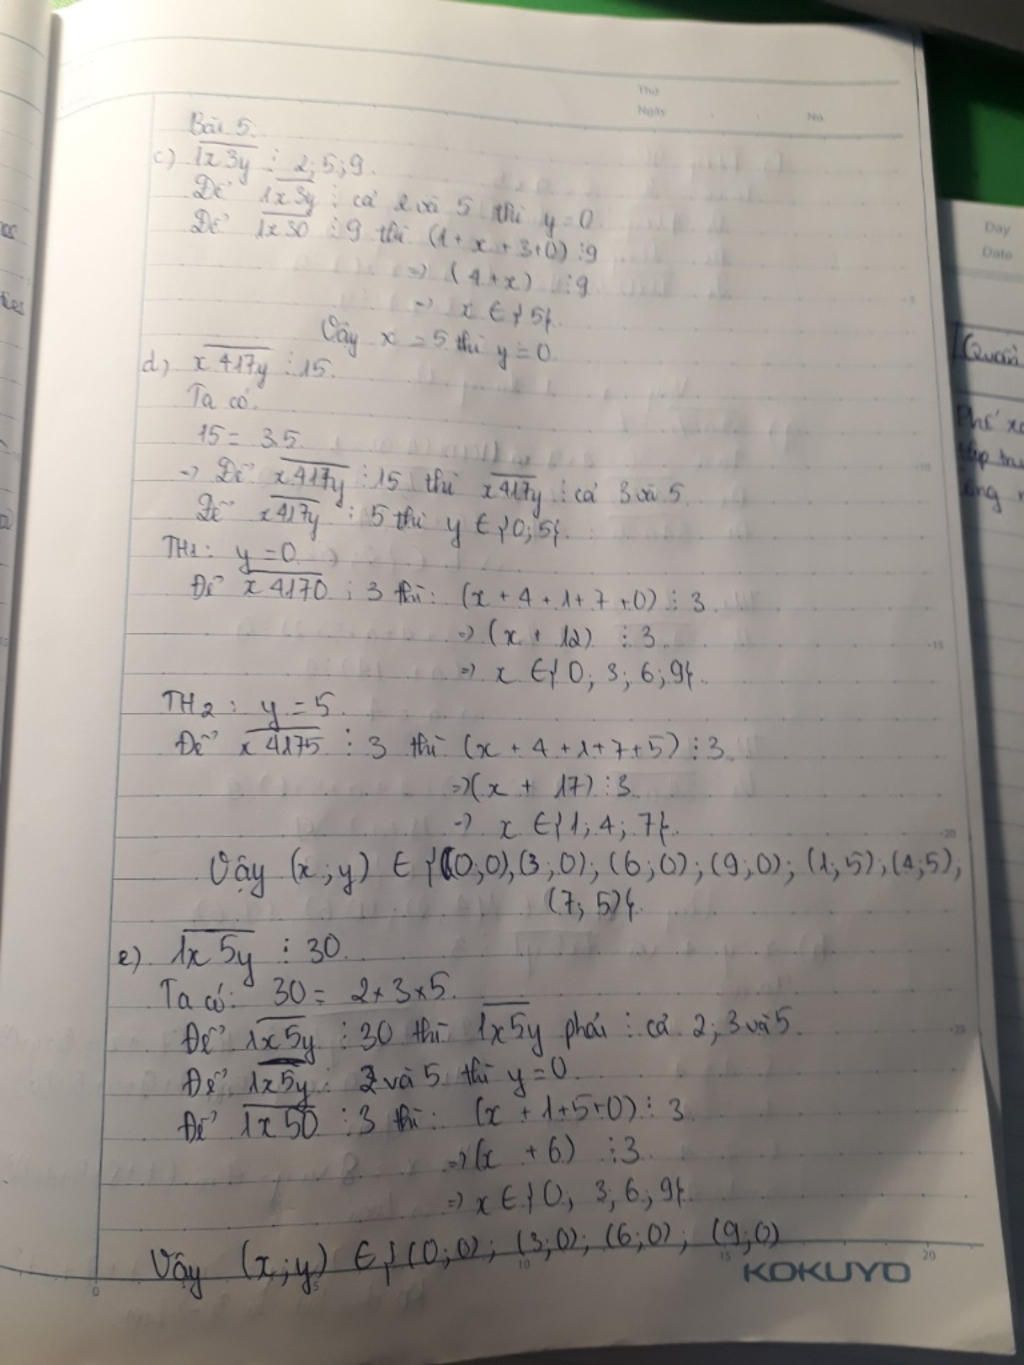 Thứ
Ngày
No.
Bài 5.
c) 1x3y ⋮ 2; 5; 9.
Để 1x3y ⋮ cả 2 và 5 thì y = 0
Để 1x30 ⋮ 9 thì (1 + x + 3 + 0) ⋮ 9
=> (4 + x) ⋮ 9
=> x ∈ {5}.
Vậy x = 5 thì y = 0.
d) x417y ⋮ 15.
Ta có.
15 = 3.5.
=> Để x417y ⋮ 15 thì x417y ⋮ cả 3 và 5.
Để x417y ⋮ 5 thì y ∈ {0; 5}.
TH1: y = 0
Để x4170 ⋮ 3 thì: (x + 4 + 1 + 7 + 0) ⋮ 3.
=> (x + 12) ⋮ 3.
=> x ∈ {0; 3; 6; 9}.
TH2: y = 5.
Để x4175 ⋮ 3 thì (x + 4 + 1 + 7 + 5) ⋮ 3.
=> (x + 17) ⋮ 3.
=> x ∈ {1; 4; 7}.
Vậy (x; y) ∈ {(0;0), (3; 0); (6; 0); (9; 0); (1; 5); (4; 5);
(7; 5)}.
e) 1x5y ⋮ 30.
Ta có: 30 = 2 x 3 x 5.
Để 1x5y ⋮ 30 thì 1x5y phải ⋮ cả 2; 3 và 5.
Để 1x5y ⋮ 2 và 5 thì y = 0.
Để 1x50 ⋮ 3 thì: (x + 1 + 5 + 0) ⋮ 3.
=> (x + 6) ⋮ 3.
=> x ∈ {0, 3; 6; 9}.
Vậy (x; y) ∈ {(0; 0); (3; 0); (6; 0); (9; 0)
KOKUYO
Day
Date